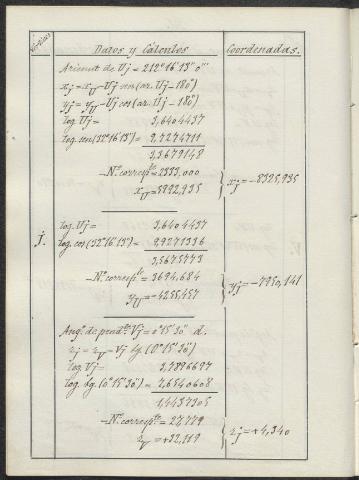 Datos y Cálculos
Coordenadas.
Acimut de Uj = 212°16'13" 0'''
xj = xU - Uj sen (az. Uj - 180°)
yj = yU - Uj cos (az. Uj - 180°)
log. Uj = 3,6404437
log. sen (32°16'13") = 9,7274711
3,3679148
-N.° corresp.te = 2333,000
xU = -5992,935
xj = -8325,935
J.
log. Uj = 3,6404437
log. cos (32°16'13") = 9,9271336
3,5675773
-N.° corresp.te = 3694,684
yU = -4255,457
yj = -7950,141
Ang.° de pend.te Vj = 0°15'30" d.
zj = zv - Vj tg. (0°15'30")
log. Vj = 3,7896697
log. tg. (0°15'30") = 7,6540608
1,4437305
-N.° corresp.te = 27,779
zv = +32,119
zj = +4,340